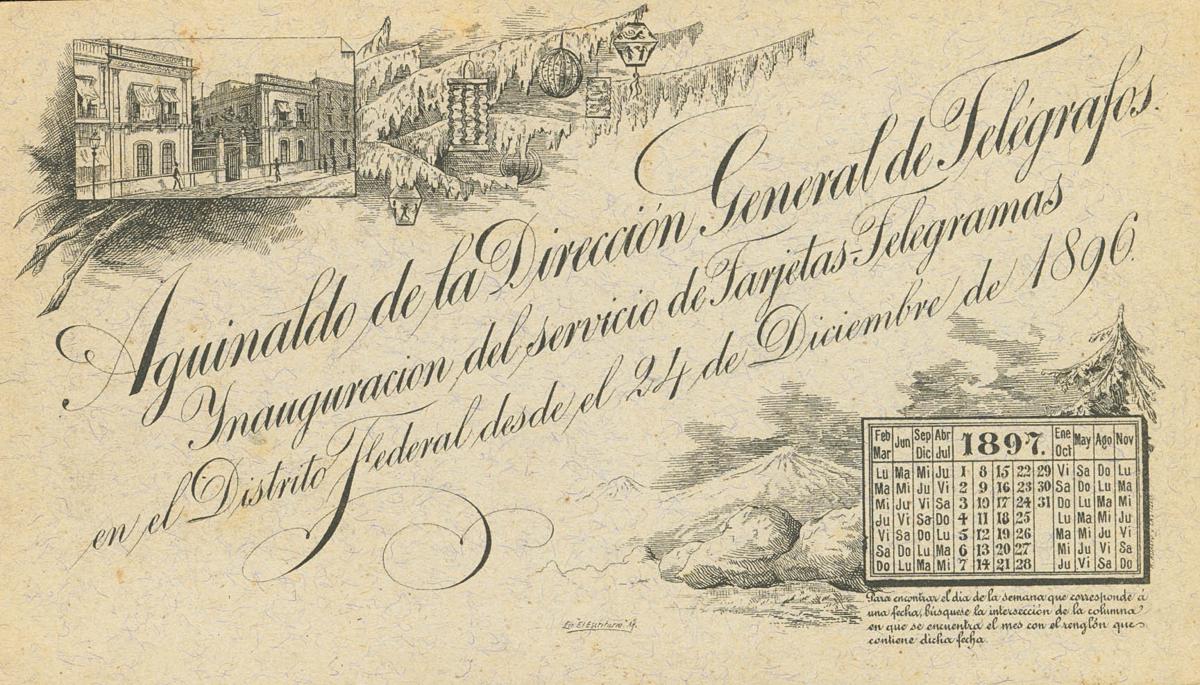 Aguinaldo de la Dirección General de Telégrafos.
Ynauguracion del servicio de Tarjetas-Telegramas
en el Distrito Federal desde el 24 de Diciembre de 1896.
Feb Mar Jun Sep Dic Abr Jul 1897. Ene Oct May Ago Nov
Lu Ma Mi Ju 1 8 15 22 29 Vi Sa Do Lu
Ma Mi Ju Vi 2 9 16 23 30 Sa Do Lu Ma
Mi Ju Vi Sa 3 10 17 24 31 Do Lu Ma Mi
Ju Vi Sa Do 4 11 18 25 Lu Ma Mi Ju
Vi Sa Do Lu 5 12 19 26 Ma Mi Ju Vi
Sa Do Lu Ma 6 13 20 27 Mi Ju Vi Sa
Do Lu Ma Mi 7 14 21 28 Ju Vi Sa Do
Para encontrar el dia de la semana que corresponde á
una fecha, búsquese la intersección de la columna
en que se encuentra el mes con el renglón que
contiene dicha fecha.